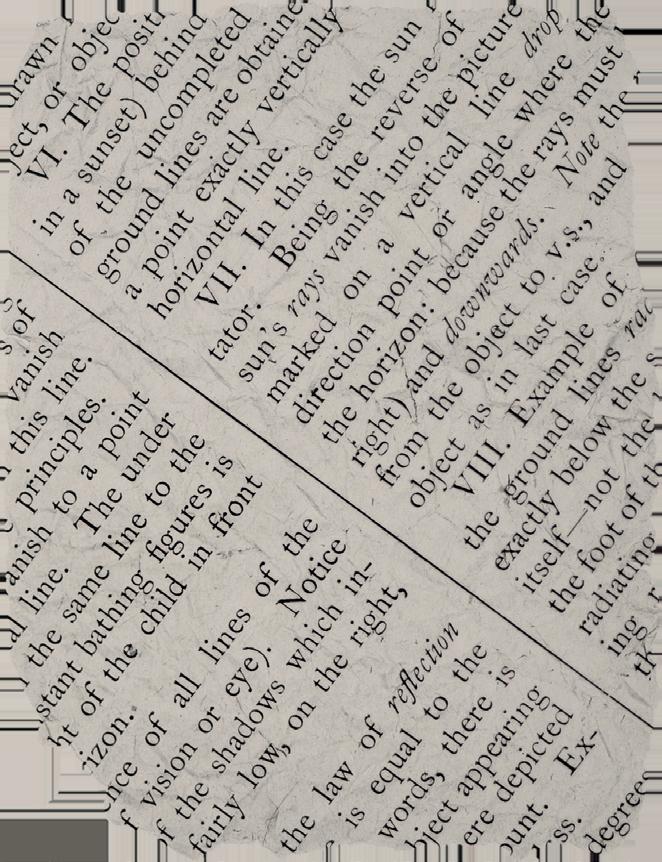 of
vanish
this line.
principles.
anish to a point
al line. The under
the same line to the
stant bathing figures is
ht of the child in front
izon.
nce of all lines of the
f vision or eye). Notice
of the shadows which in-
fairly low, on the right,
the law of reflection
is equal to the
words, there is
bject appearing
ere depicted
ount. Ex-
ss.
degree
rawn
ject, or objec
VI. The positi
in a sunset) behind
of the uncompleted
ground lines are obtaine
a point exactly vertically
horizontal line.
VII. In this case the sun
tator. Being the reverse of
sun's rays vanish into the picture
marked on a vertical line drop
direction point or angle where the
the horizon: because the rays must
right) and downwards. Note the
from the object to v.s., and
object as in last case.
VIII. Example of
the ground lines rad
exactly below the s
itself—not the
the foot of th
radiating
ing
th